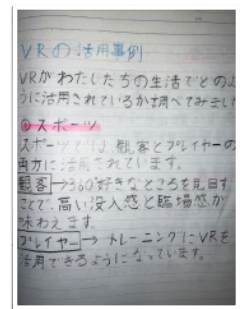 VRの活用事例
VRがわたしたちの生活でどのよ
うに活用されているか調べてみまし
①スポーツ
スポーツでは、観客とプレイヤーの
両方に活用されています。
観客→360°好きなところを見回す
ことで、高い没入感と臨場感が
味わえます。
プレイヤー→トレーニングにVRを
活用できるようになっています。